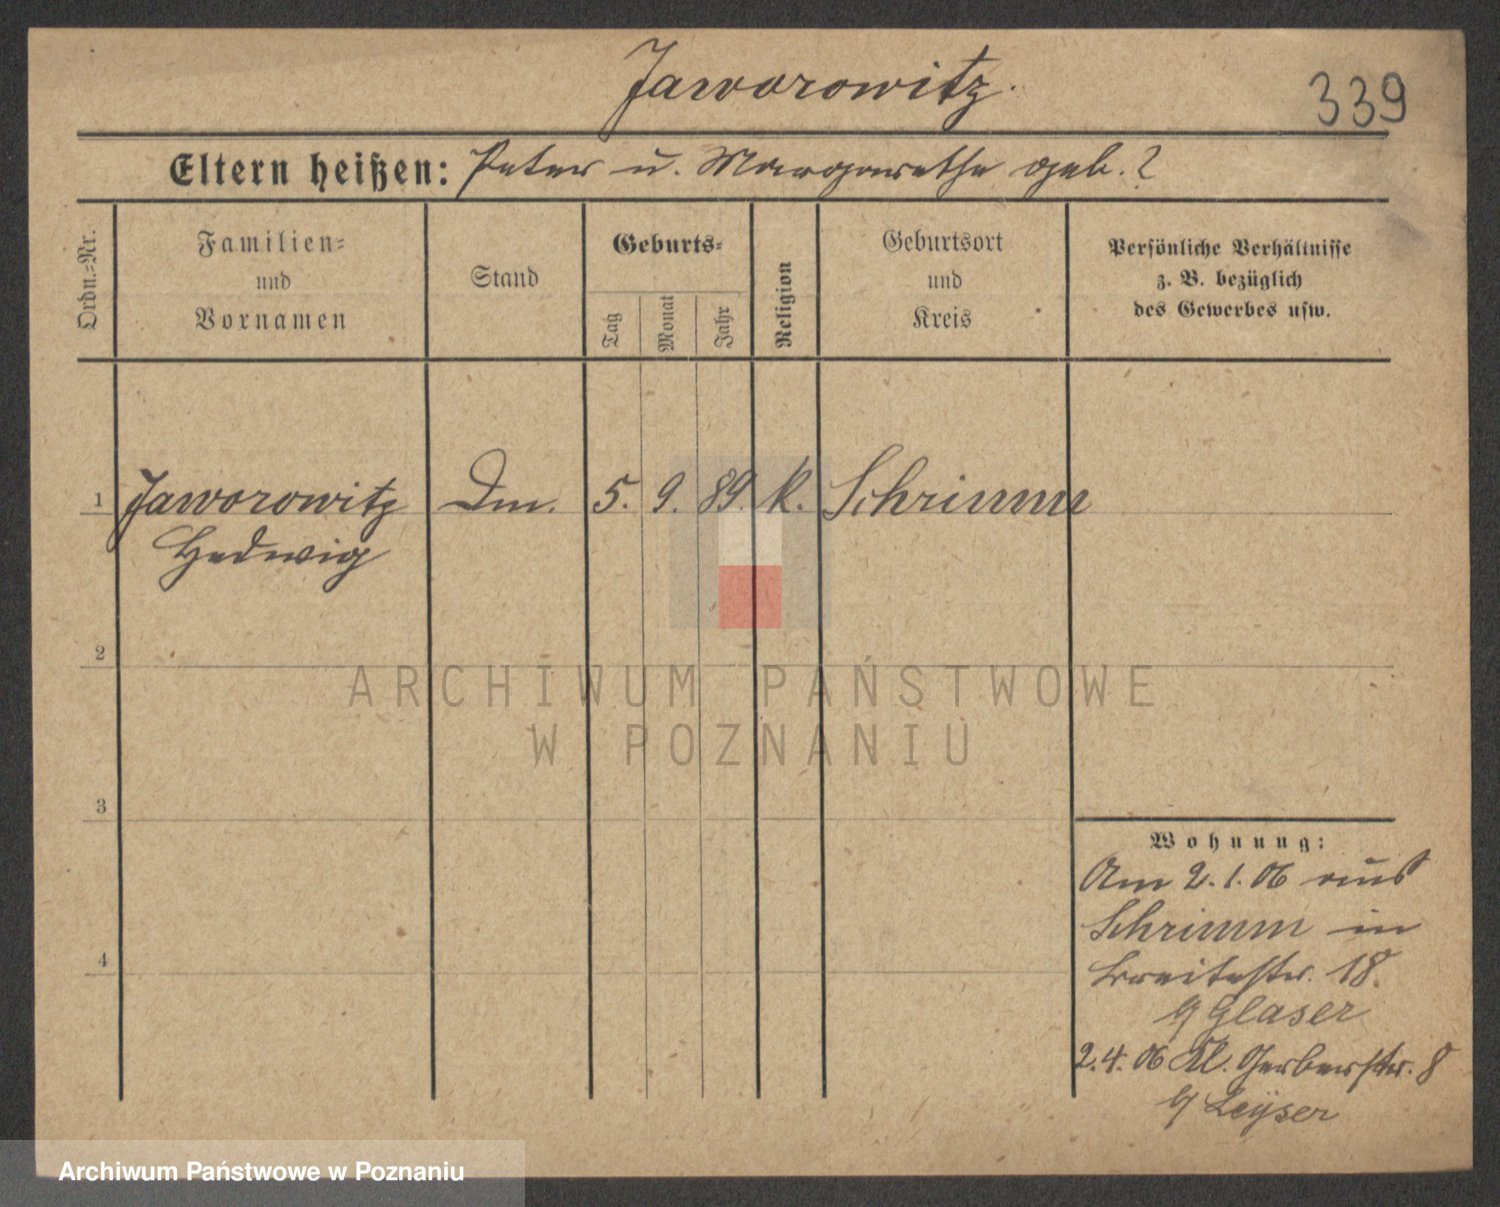 Jaworowitz.
339
Eltern heißen: Peter u. Margarethe geb. ?
Ordn.=Nr.
Familien=
und
Vornamen
Stand
Geburts=
Tag
Monat
Jahr
Religion
Geburtsort
und
Kreis
Persönliche Verhältnisse
z. B. bezüglich
des Gewerbes usw.
1 Jaworowitz Dm. 5. 9. 89. k. Schrimm
Hedwig
2
3
4
Wohnung:
Am 2.1.06 aus
Schrimm in
Breitestr. 18.
b/ Glaser
2.4.06 Kl. Gerberstr. 8
b/ Leyser
ARCHIWUM PAŃSTWOWE
W POZNANIU
Archiwum Państwowe w Poznaniu